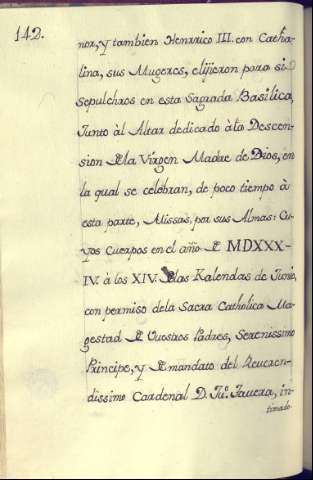 142.
nor, y tambien Henrrico III. con Catha-
lina, sus Mugeres, elijieron para si
sepulchros en esta Sagrada Basilica,
Junto àl Altar dedicado à la Descen-
sion de la Virgen Madre de Dios, en
la qual se celebran, de poco tiempo à
esta parte, Missas, por sus Almas: Cu-
yos Cuerpos en el año de MDXXX-
IV. à los XIV. de las Kalendas de Junio,
con permiso de la Sacra Catholica Ma-
gestad de Vuestros Padres, Serenissimo
Principe, y de mandato del Reveren-
dissimo Cardenal D. Juº. Tavera, in-
timado